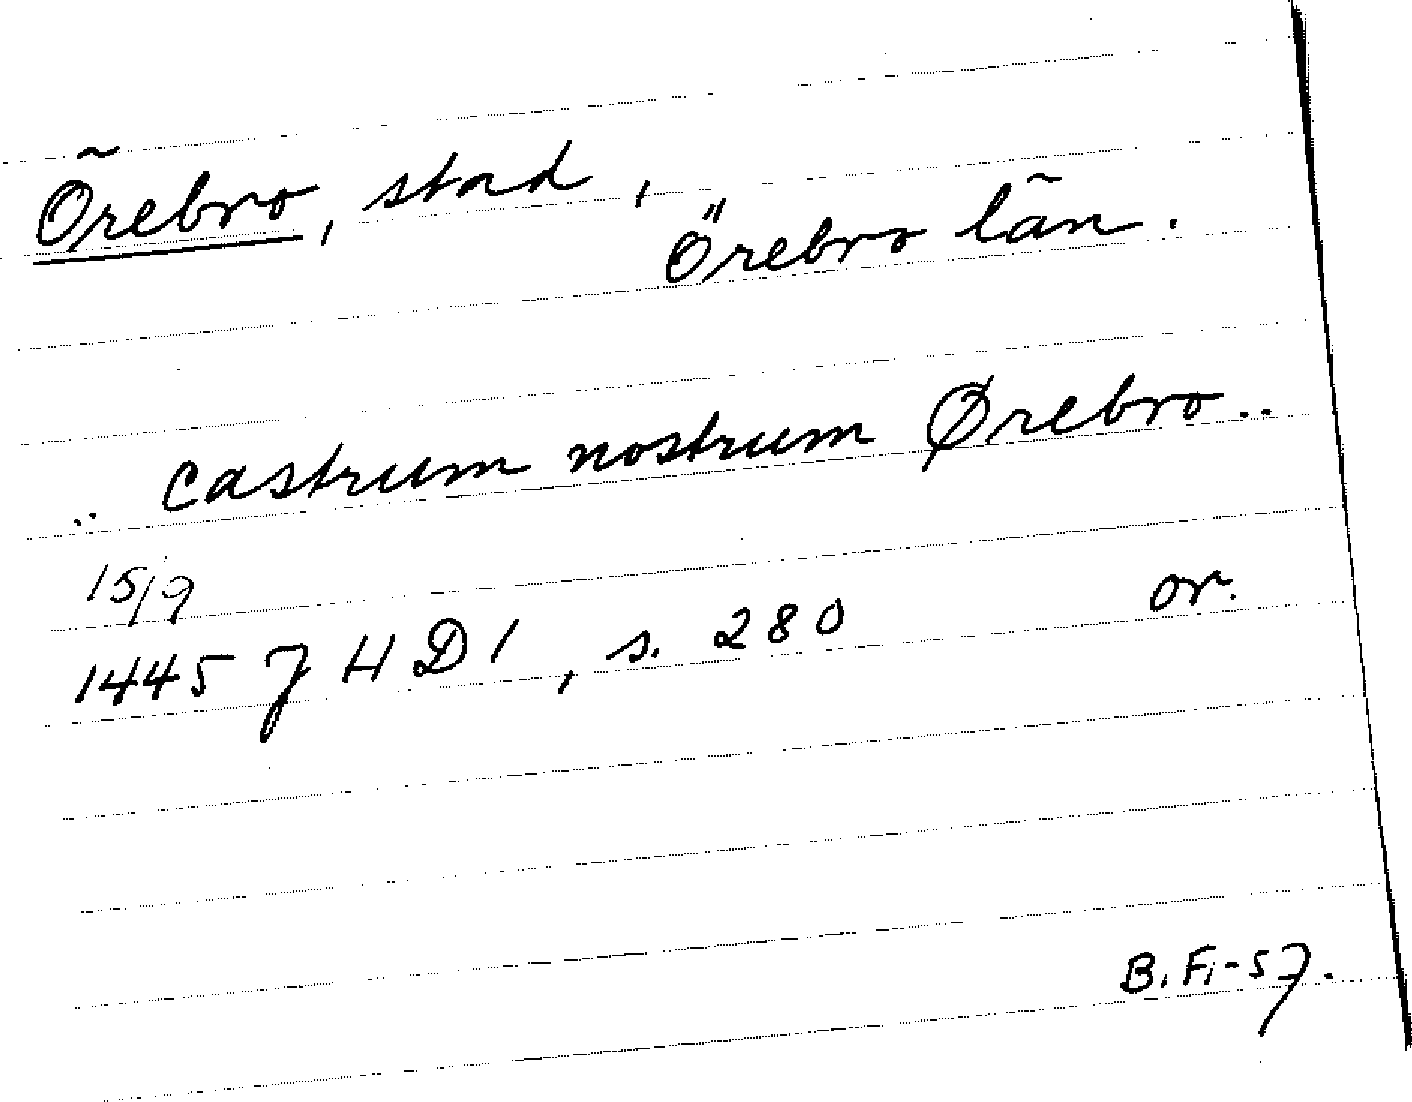 Örebro, stad,
Örebro län.
.. castrum nostrum Ørebro..
15/9
1445 JHD1, s. 280 or.
B. Fi-57.